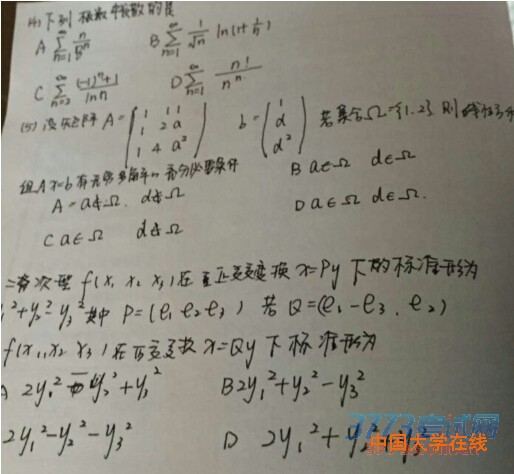 (4) 下列级数中发散的是
A \sum_{n=1}^{\infty} \frac{n}{8^n} B \sum_{n=1}^{\infty} \frac{1}{\sqrt{n}} ln(1+\frac{1}{n})
C \sum_{n=2}^{\infty} \frac{(-1)^n+1}{ln n} D \sum_{n=1}^{\infty} \frac{n!}{n^n}
(5) 设矩阵 A = (1 1 1; 1 2 a; 1 4 a²) b = (1; d; d²) 若集合Ω={1,2} 则线性方
组Ax=b有无穷多解的充分必要条件
A = a∉Ω. d∉Ω B a∉Ω d∈Ω
C a∈Ω d∉Ω D a∈Ω d∈Ω.
二次型 f(x₁ x₂ x₃) 在正交变换 x=Py 下的标准形为
y₁²+y₂²-y₃² 其中 P=(e₁ e₂ e₃) 若 Q=(e₁ -e₃, e₂)
f(x₁,x₂ x₃) 在正交变换 x=Qy 下标准形为
A 2y₁²-y₂²+y₃² B 2y₁²+y₂²-y₃²
2y₁²-y₂²-y₃² D 2y₁²+y₂²
7773考试网
中国大学在线